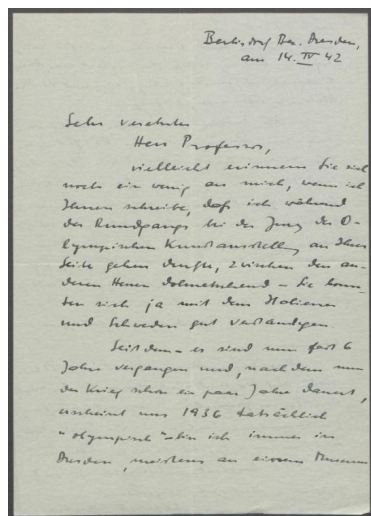 Bertlsdorf Bez. Dresden,
am 14. IV 42
Sehr verehrter
Herr Professor,
vielleicht erinnern Sie sich
noch ein wenig an mich, wenn ich
Ihnen schreibe, daß ich während
des Rundgangs bei der Jury der O-
lympischen Kunstausstellung an Ihrer
Seite gehen durfte, zwischen den an-
deren Herren dolmetschend – Sie konn-
ten sich ja mit dem Italiener
und Schweden gut verständigen.
Seitdem – es sind nun fast 6
Jahre vergangen und, nachdem nun
der Krieg schon ein paar Jahre dauert,
erscheint uns 1936 tatsächlich
"olympisch" – bin ich immer in
Dresden, meistens an einem Museum